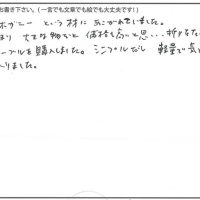 お書き下さい。(一言でも文章でも絵でも大丈夫です!)
ホガニー という材に あこがれていました。
大きな物だと 価格も高いと思...折りたたみ
ーブルを購入しました。シンプルだし 軽量で気に
入りました。